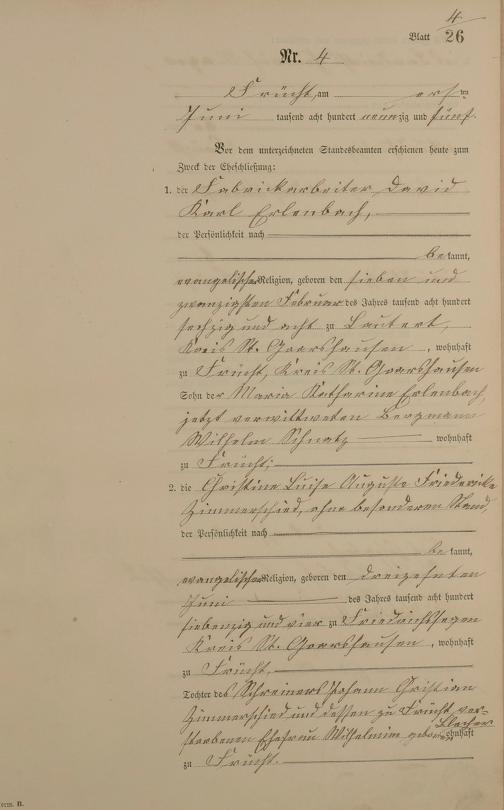 4
Blatt 26
Nr. 4
Frücht, am ersten
Juni tausend acht hundert neunzig und fünf.
Vor dem unterzeichneten Standesbeamten erschienen heute zum
Zweck der Eheschließung:
1. der Fabrikarbeiter David
Karl Erlenbach,
der Persönlichkeit nach
bekannt,
evangelischer Religion, geboren den sieben und
zwanzigsten Februar des Jahres tausend acht hundert
sechzig und acht zu Lautert,
Kreis St. Goarshausen, wohnhaft
zu Frücht, Kreis St. Goarshausen
Sohn der Maria Katharine Erlenbach,
jetzt verwittweten Bergmann
Wilhelm Schnatz wohnhaft
zu Frücht;
2. die Christine Luise Auguste Friederike
Zimmerschied, ohne besonderen Stand,
der Persönlichkeit nach
bekannt,
evangelischer Religion, geboren den dreizehnten
Juni des Jahres tausend acht hundert
siebenzig und vier zu Friedrichssegen
Kreis St. Goarshausen, wohnhaft
zu Frücht,
Tochter des Schreiners Johann Christian
Zimmerschied und dessen zu Frücht ver-
storbenen Ehefrau Wilhelmine geborene Blecher wohnhaft
zu Frücht.
orm. B.